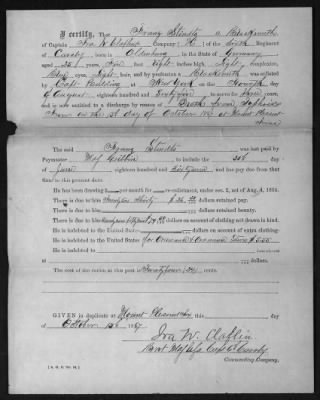 I certify, That Franz Stinetz a Blacksmith
of Captain Ira W. Claflin Company (H) of the Sixth Regiment
of Cavalry born in Oldenburg in the State of Germany
aged 26 years, Five feet Eight inches high, Light complexion,
Blue eyes, Light hair, and by profession a Blacksmith was enlisted
by Capt Paulding at New York on the Fourth day
of August eighteen hundred and Sixty to serve years,
and is now entitled to a discharge by reason of Death from Typhoid
Fever on the 1st day of October 1867 at Mount Pleasant
Texas
The said Franz Stinetz was last paid by
Paymaster Maj to include the 30th day of
June eighteen hundred and Sixty and has pay due from that
time to the present date.
He has been drawing $ per month for re-enlistment, under sec. 2, act of Aug. 4, 1854.
There is due to him dollars retained pay.
There is due to him dollars on account of clothing not drawn in kind.
He is indebted to the United States dollars on account of extra clothing.
He is indebted to the United States for
The cost of the ration at this post is Twenty four (24) cents.
GIVEN in duplicate at Mount Pleasant this day
of October 1867
Ira W. Claflin
Bvt Maj USA Capt 6th Cavalry
Commanding Company.